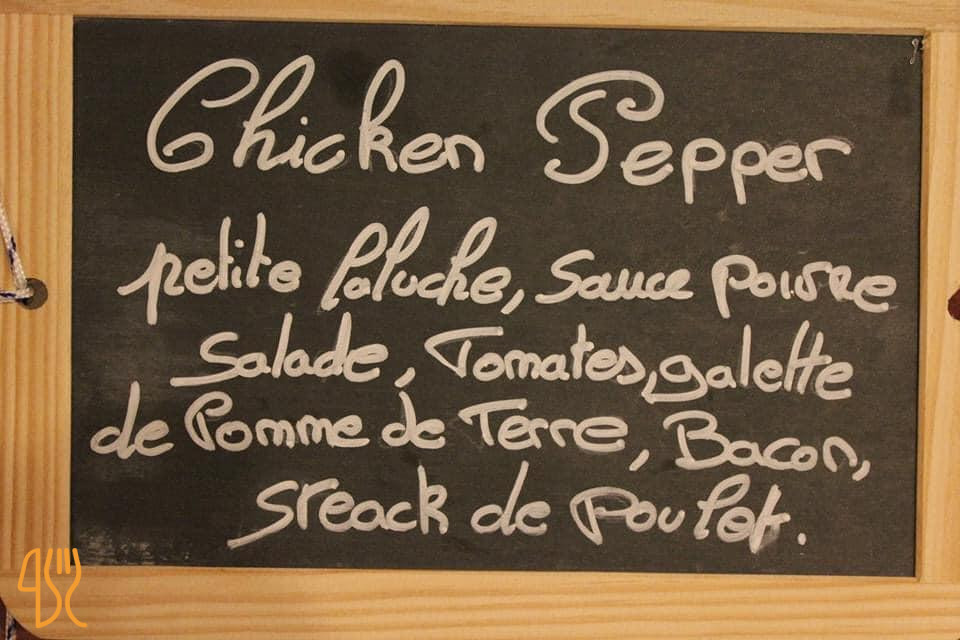 Chicken Pepper
petite Paluche, Sauce poivre
Salade, Tomates, galette
de Pomme de Terre, Bacon,
steack de Poulet.